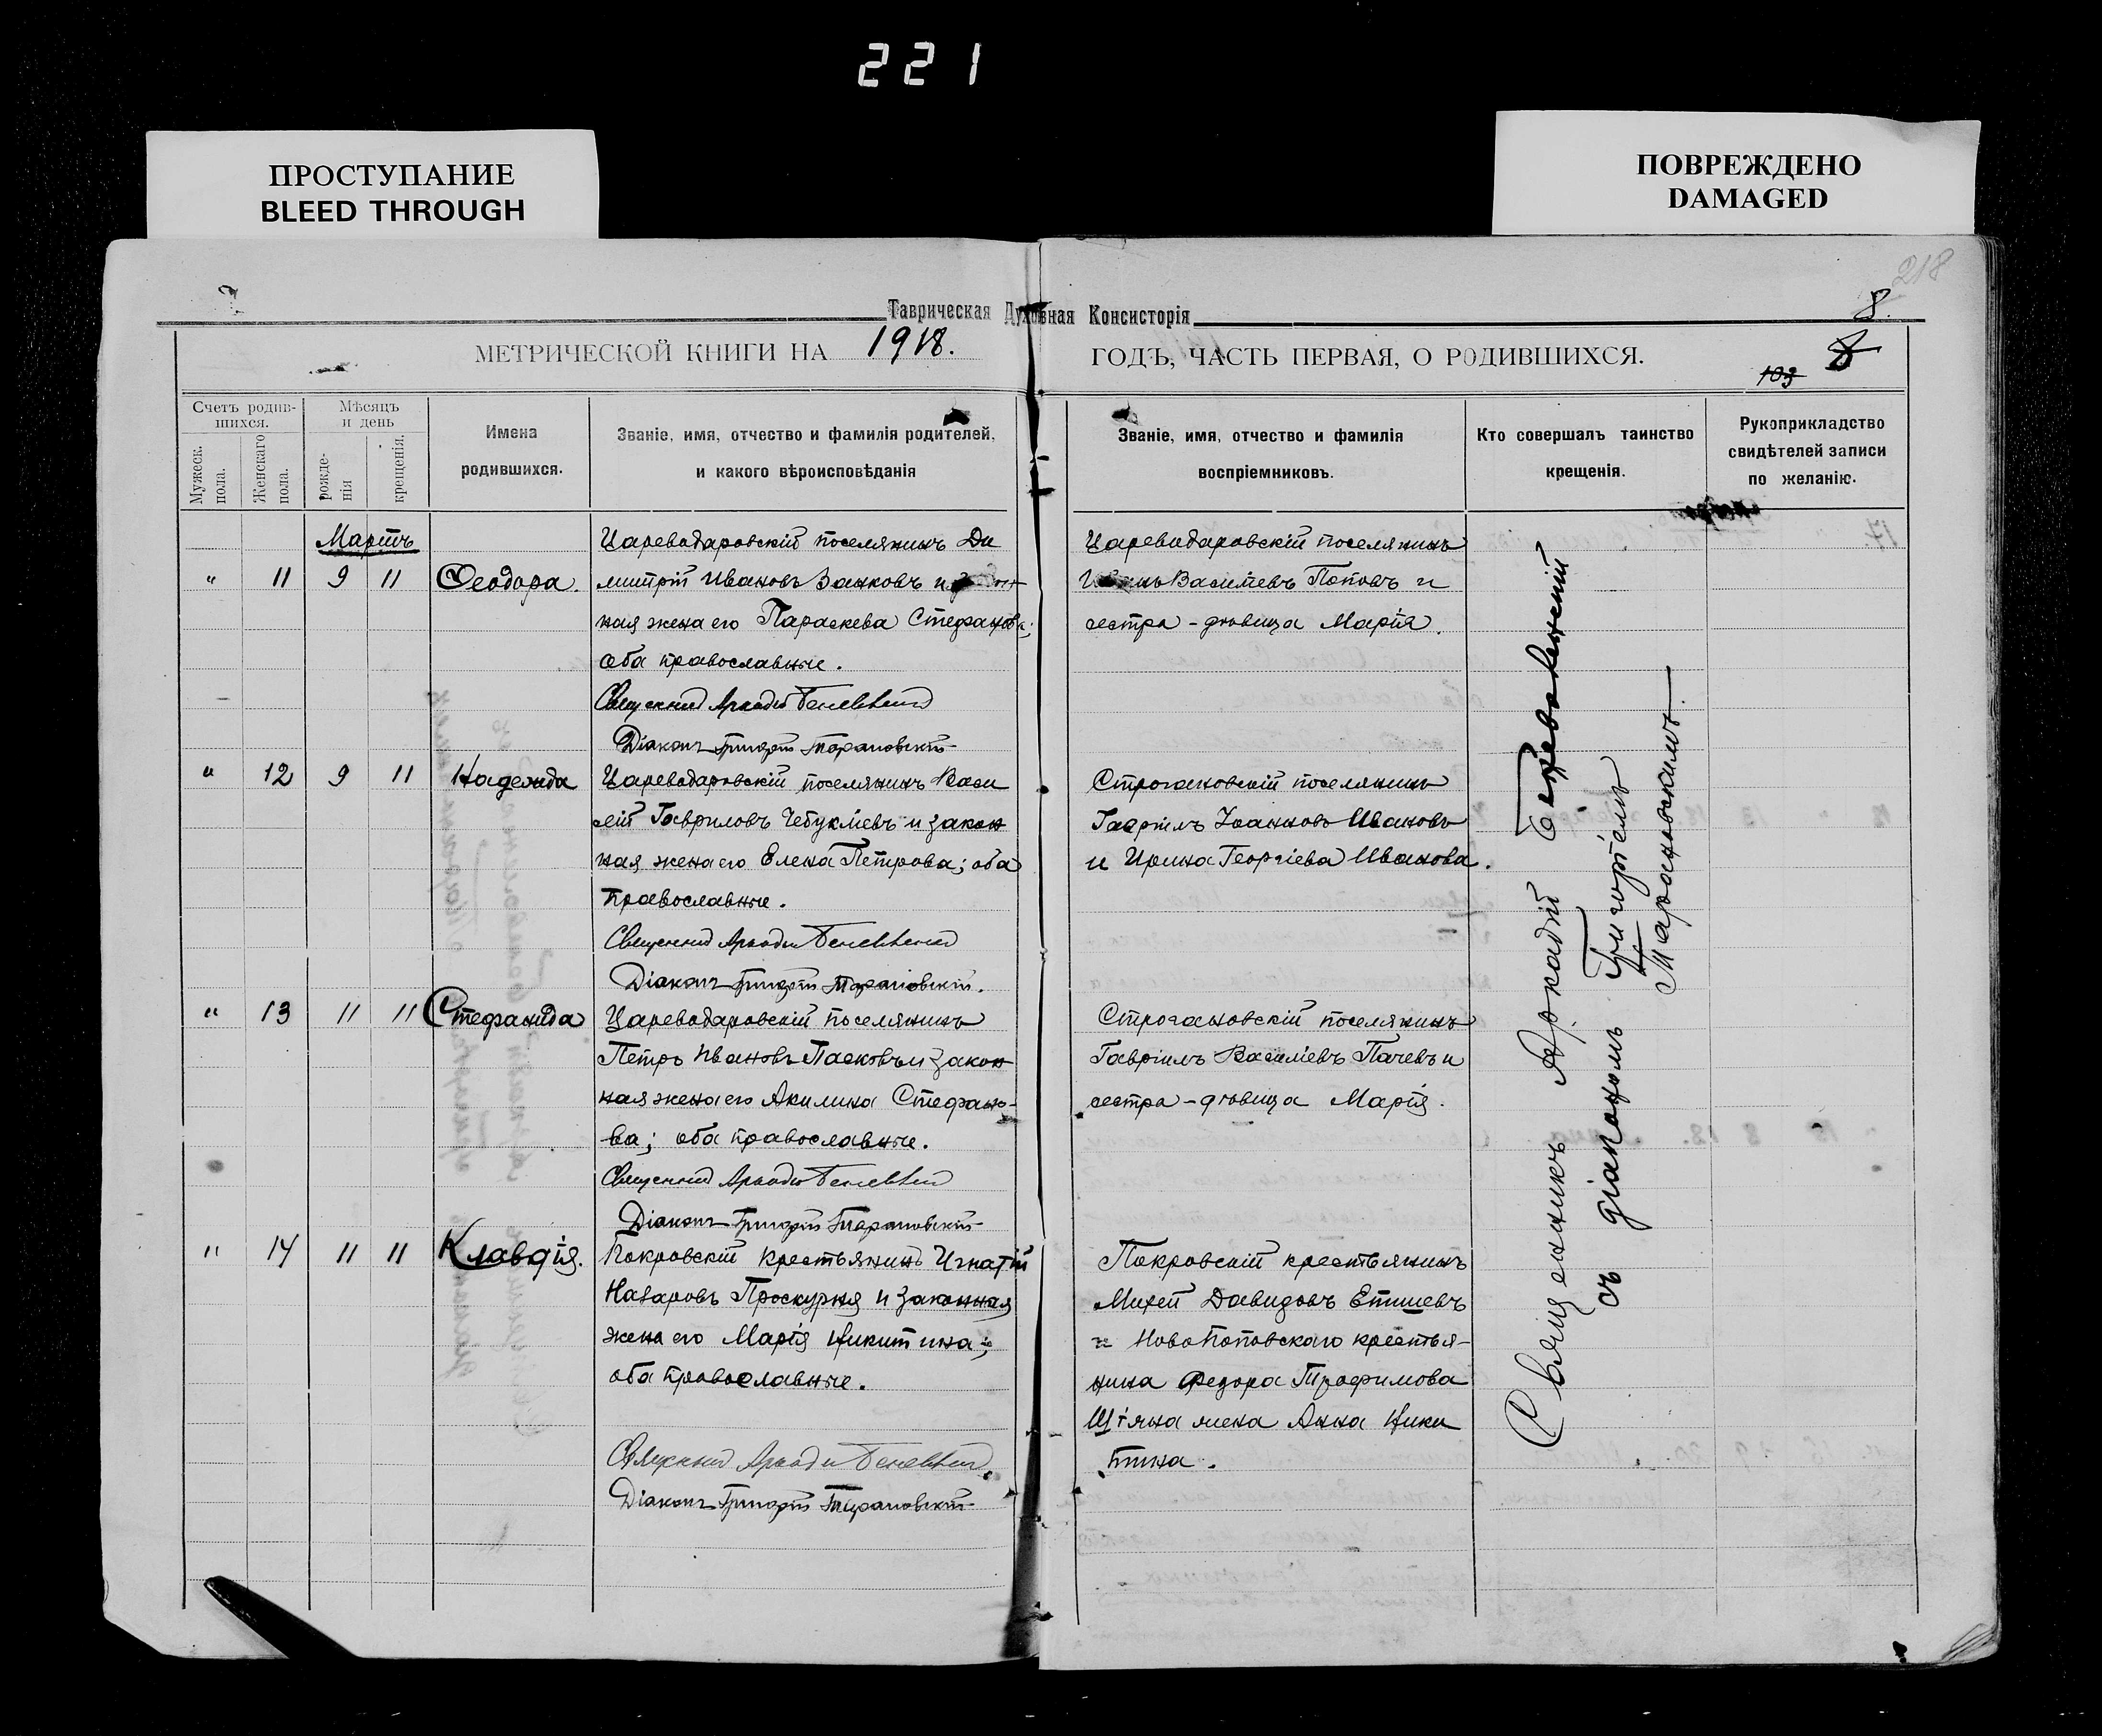 221
ПРОСТУПАНИЕ
BLEED THROUGH
ПОВРЕЖДЕНО
DAMAGED
218
Таврическая Духовная Консисторія
8.
МЕТРИЧЕСКОЙ КНИГИ НА 1918. ГОДЪ, ЧАСТЬ ПЕРВАЯ, О РОДИВШИХСЯ.
8
103
Счетъ родив-
шихся.
Мужеск.
пола.
Женскаго
пола.
Мѣсяцъ
и день
рожде-
нія
крещенія.
Имена
родившихся.
Званіе, имя, отчество и фамилія родителей,
и какого вѣроисповѣданія
Званіе, имя, отчество и фамилія
воспріемниковъ.
Кто совершалъ таинство
крещенія.
Рукоприкладство
свидѣтелей записи
по желанію.
Мартъ
" 11 9 11 Ѳеодора.
Цареводаровскій поселянинъ Ди
митрій Ивановъ Занковъ и
ная жена его Параскева Стефанова;
оба православные.
Діаконъ Григорій Тарановскій
Цареводаровскій поселянинъ
Василіевъ Поповъ и
сестра-дѣвица Марія.
" 12 9 11 Надежда
Цареводаровскій поселянинъ Васи
лій Гавриловъ Чебукліевъ и закон
ная жена его Елена Петрова; оба
православные.
Діаконъ Григорій Тарановскій.
Строгановскій поселянинъ
Гавріилъ Іоанновъ Ивановъ
и Ирина Георгіева Иванова.
" 13 11 11 Стефанида
Цареводаровскій поселянинъ
Петръ Ивановъ Пасковъ и закон
ная жена его Акилина Стефано-
ва; оба православные.
Діаконъ Григорій Тарановскій
Строгановскій поселянинъ
Гавріилъ Василіевъ Пачевъ и
сестра-дѣвица Марія.
" 14 11 11 Клавдія.
Покровскій крестьянинъ Игнатій
Назаровъ Проскурня и законная
жена его Марія Никитина;
оба православные.
Діаконъ Григорій Тарановскій
Покровскій крестьянинъ
Михей Давидовъ
и Новопоповскаго крестья-
нина Федора Трофимова
жена Анна Ники
тина.
Священникъ Аркадій
съ діакономъ Григоріемъ
Тарановскимъ.